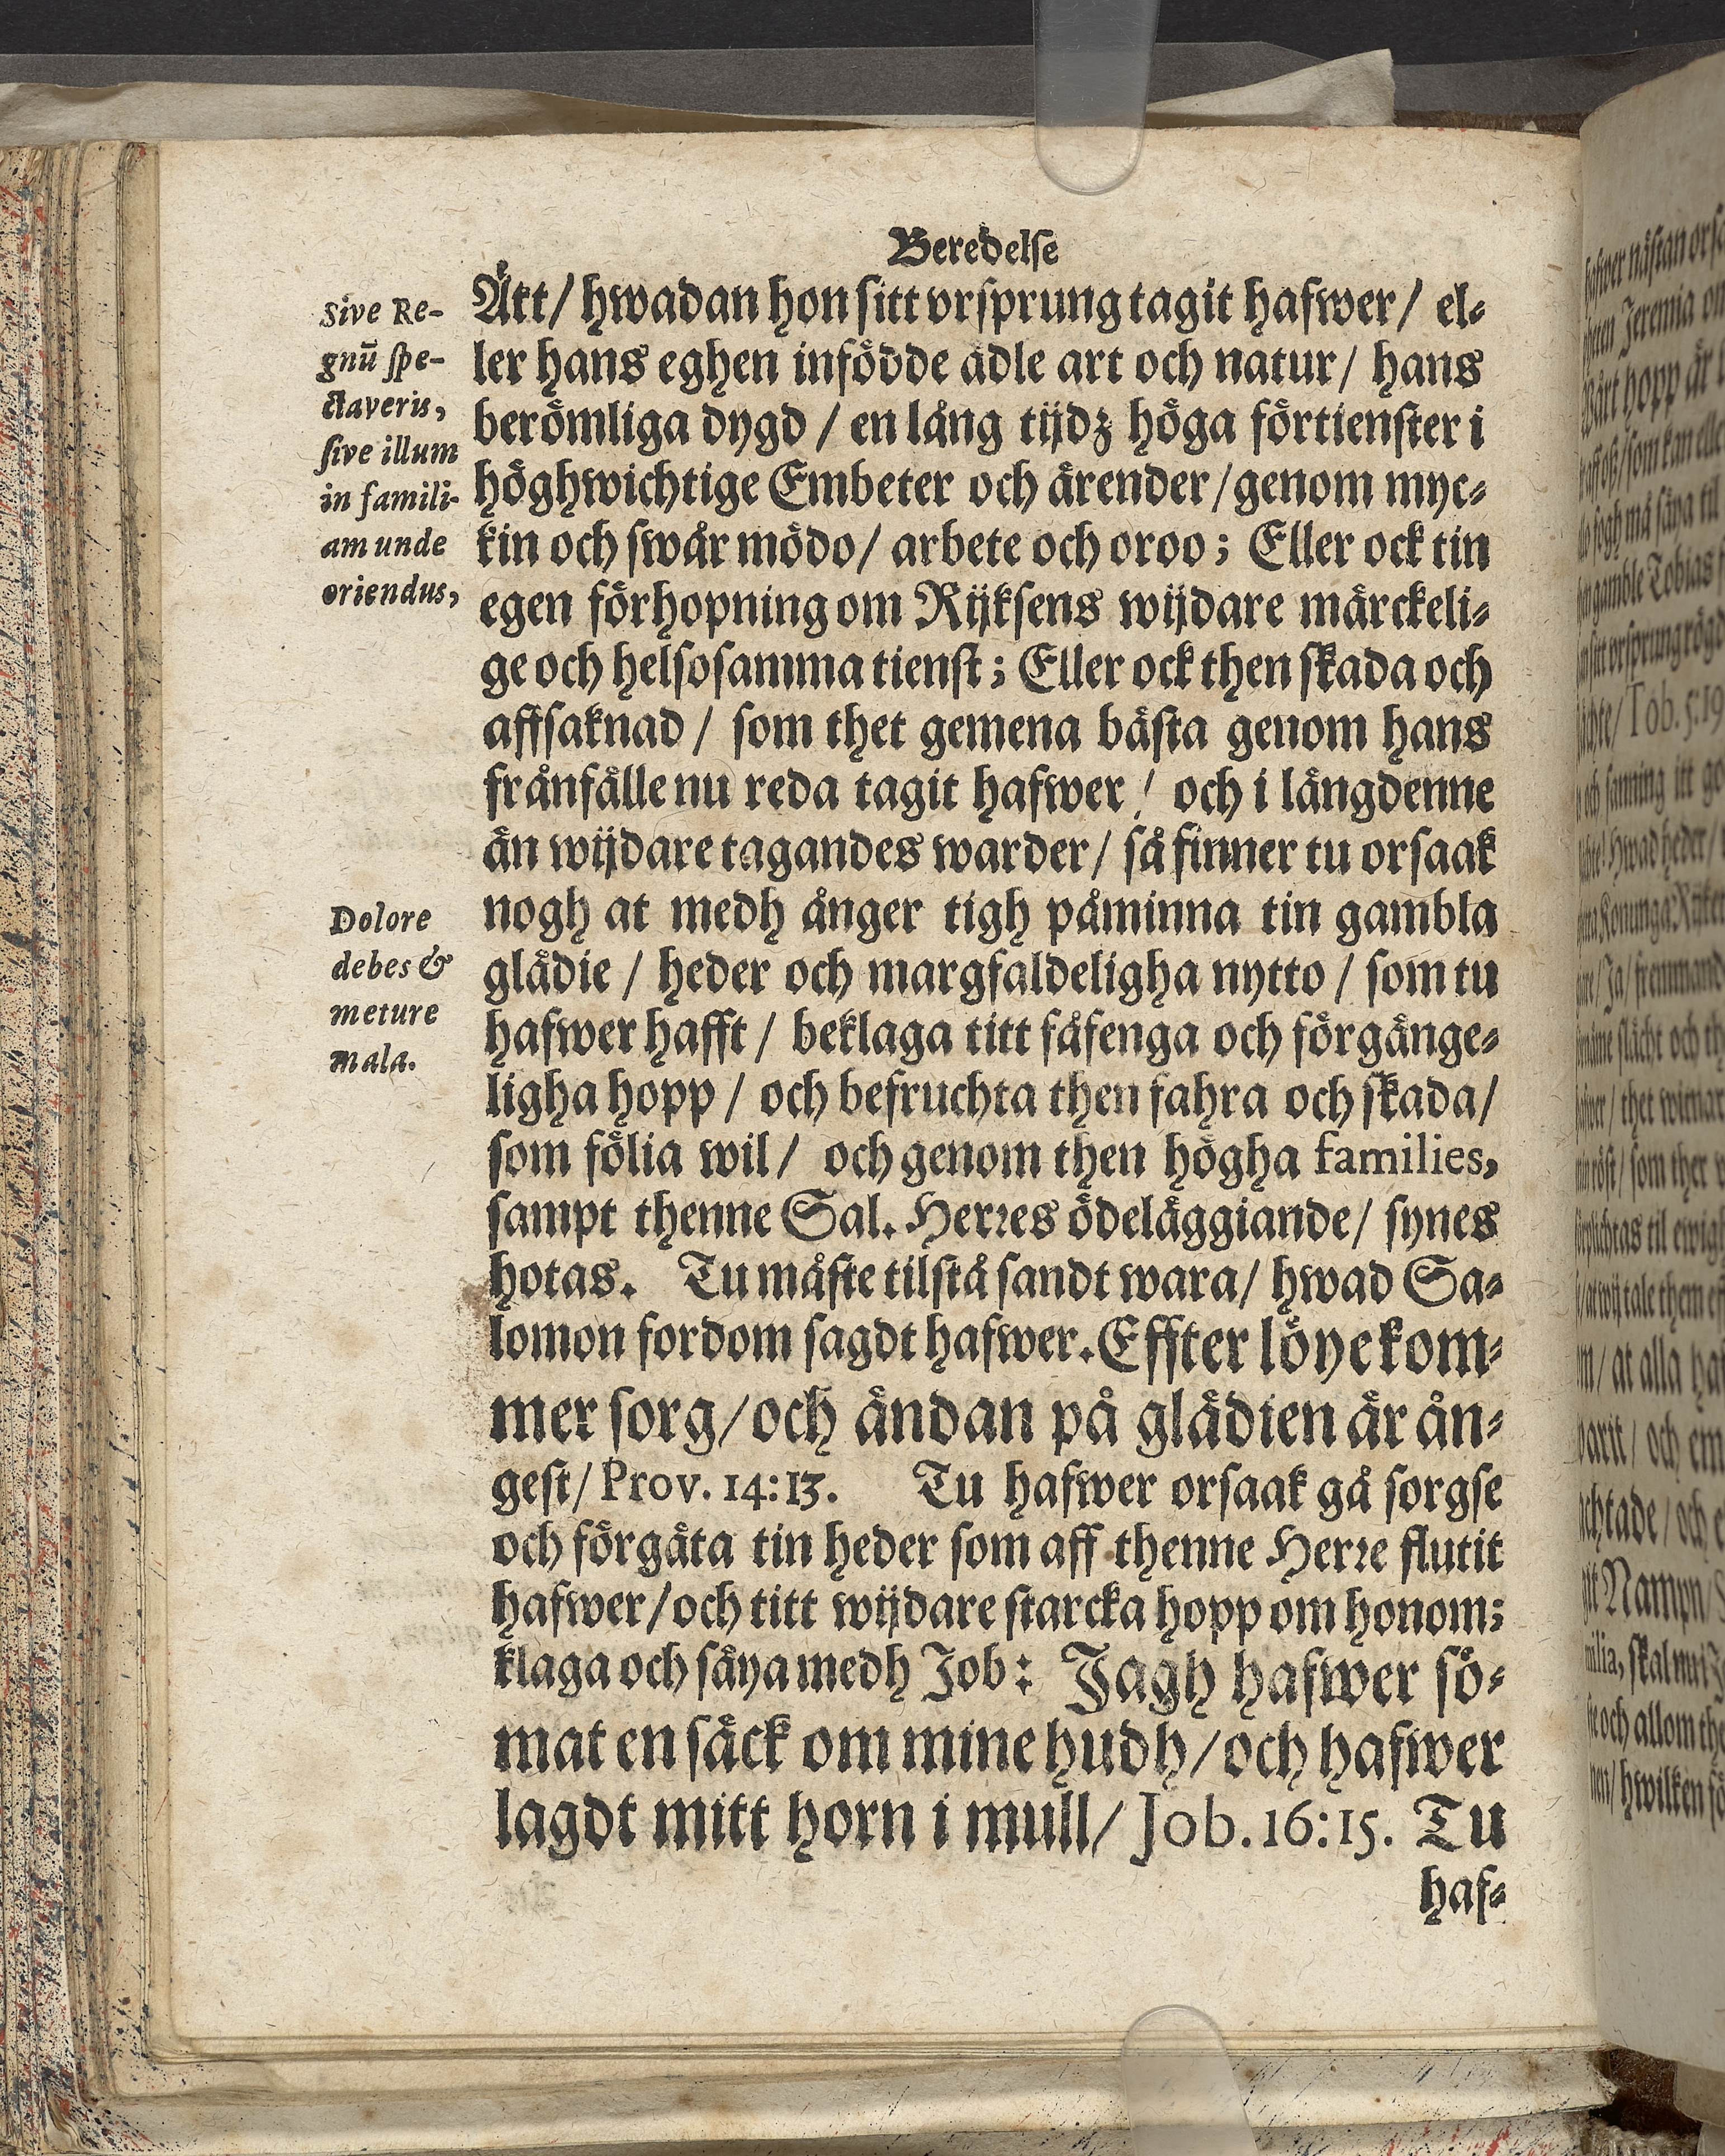 Beredelse
Ått/ hwadan hon sitt vrsprung tagit hafwer/ el-
ler hans eghen infödde ädle art och natur/ hans
berömliga dygd / en lång tijdz höga förtienster i
höghwichtige Embeter och ärender/genom myc-
kin och swår mödo/ arbete och oroo; Eller ock tin
egen förhopning om Rijksens wijdare märckeli-
ge och helsosamma tienst; Eller ock then skada och
affsaknad / som thet gemena bästa genom hans
frånfälle nu reda tagit hafwer / och i längdenne
än wijdare tagandes warder/ så finner tu orsaak
nogh at medh ånger tigh påminna tin gambla
glädie / heder och margfaldeligha nytto / som tu
hafwer hafft / beklaga titt fåfenga och förgänge-
ligha hopp / och befruchta then fahra och skada/
som fölia wil/ och genom then högha families,
sampt thenne Sal. Herres ödeläggiande/ synes
hotas. Tu måste tilstå sandt wara/ hwad Sa-
lomon fordom sagdt hafwer. Effter löye kom-
mer sorg/och ändan på glädien är ån-
gest/ Prov. 14:13. Tu hafwer orsaak gå sorgse
och förgäta tin heder som aff thenne Herre flutit
hafwer/och titt wijdare starcka hopp om honom;
klaga och säya medh Job: Jagh hafwer sö-
mat en säck om mine hudh/och hafwer
lagdt mitt horn i mull/ Job. 16:15. Tu
haf-
Sive Re-
gnū spe-
ctaveris,
sive illum
in famili-
am unde
oriendus,
Dolore
debes &
meture
mala.